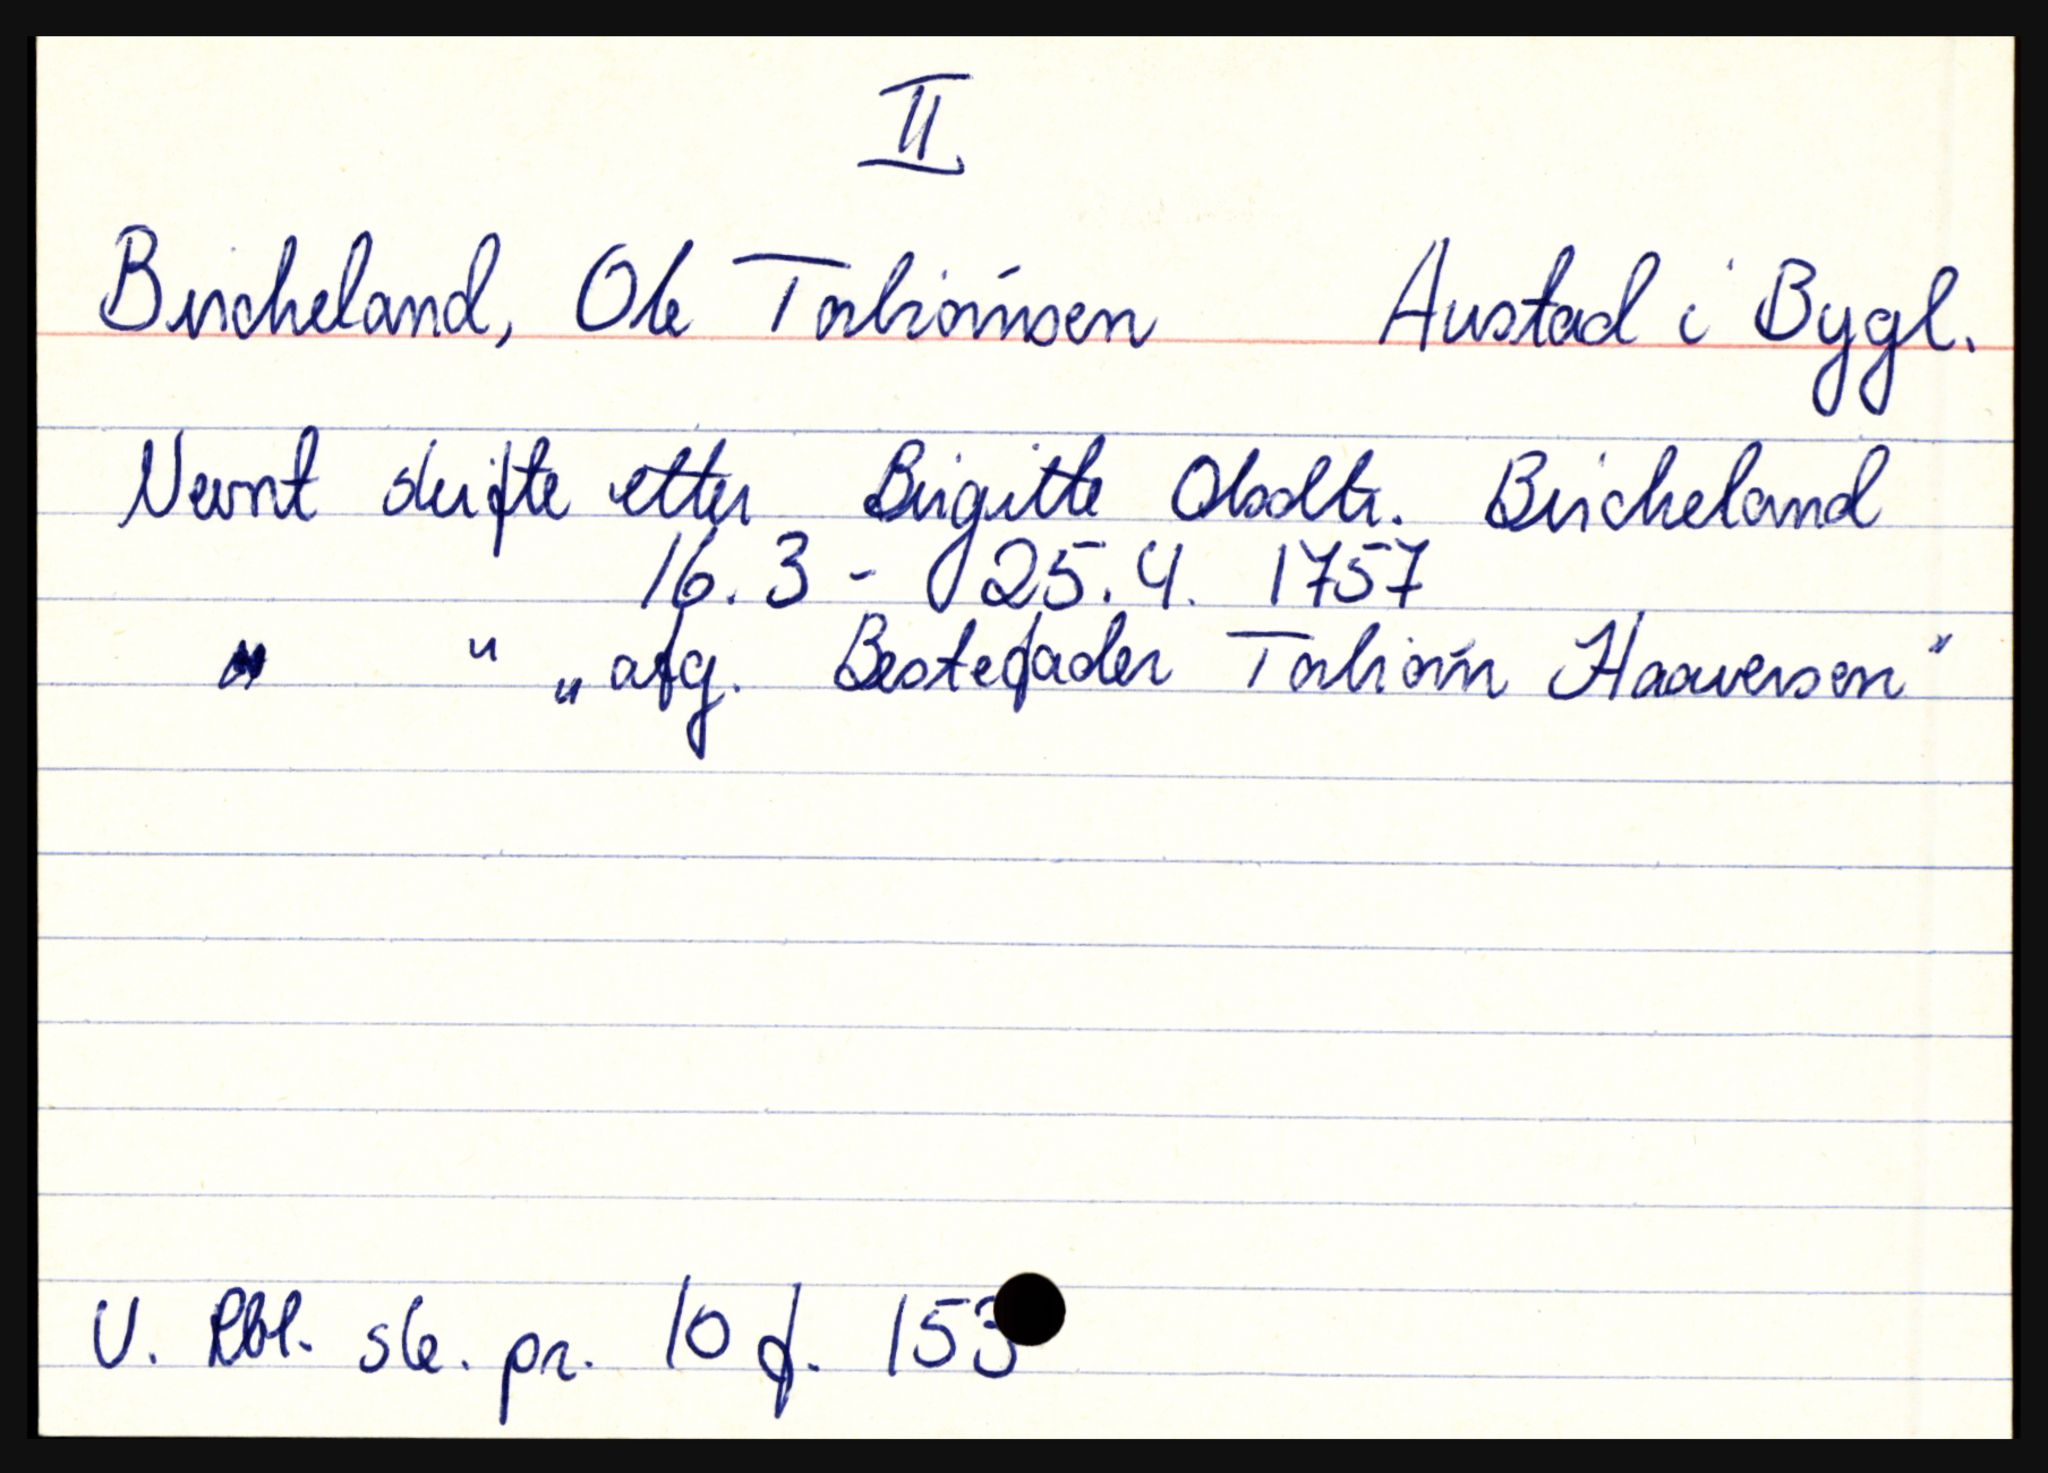 II
Bircheland, Ole Torbiörnsen Austad i Bygl.
Nevnt skifte etter Birgitte Olsdtr. Bircheland
16.3 - 25.4. 1757
" " „afg. Bestefader Torbiörn Haaversen"
V. Rbl. sk. pr. 10 f. 153